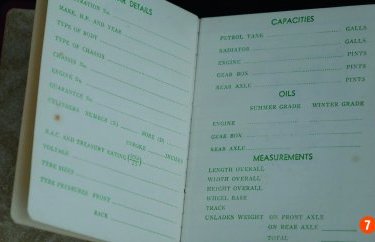 DETAILS
REGISTRATION No.
MAKE, H.P. AND YEAR
TYPE OF BODY
TYPE OF CHASSIS
CHASSIS No.
ENGINE No.
GUARANTEE No.
CYLINDERS NUMBER (S) BORE (D)
STROKE INCHES
R.A.C. AND TREASURY RATING
VOLTAGE
TYRE SIZES
TYRE PRESSURES FRONT
BACK
CAPACITIES
PETROL TANK GALLS
RADIATOR GALLS
ENGINE PINTS
GEAR BOX PINTS
REAR AXLE PINTS
OILS
SUMMER GRADE WINTER GRADE
ENGINE
GEAR BOX
REAR AXLE
MEASUREMENTS
LENGTH OVERALL
WIDTH OVERALL
HEIGHT OVERALL
WHEEL BASE
TRACK
UNLADEN WEIGHT ON FRONT AXLE
ON REAR AXLE
TOTAL
7